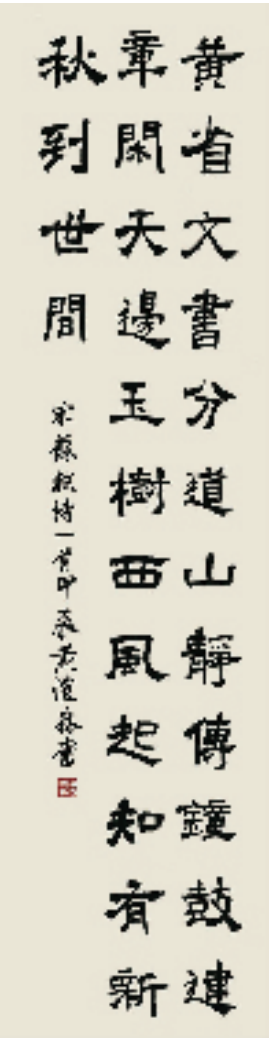 黄省文書分道山靜傳鐘鼓建
章閑天邊玉樹西風起知有新
秋到世間
宋蘇軾詩一首甲辰黄書